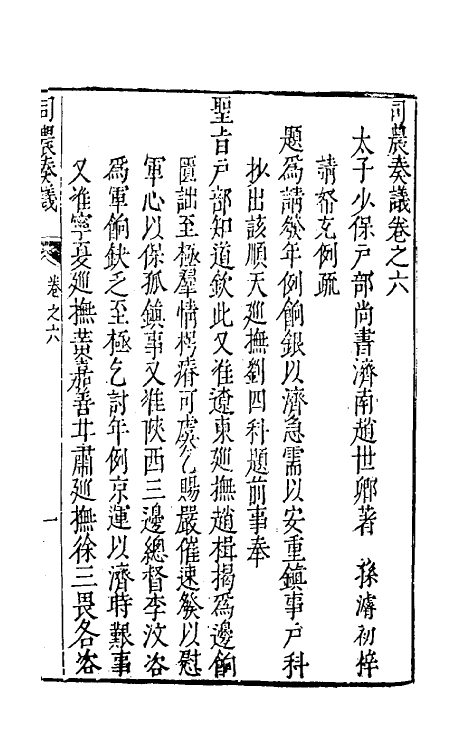 司農奏議卷之六
太子少保戶部尚書濟南趙世卿著　孫濬初梓
請帑充例疏
題為請發年例餉銀以濟急需以安重鎮事戶科
抄出該順天廵撫劉四科題前事奉
聖旨戶部知道欽此又准遼東廵撫趙楫揭為邊餉
匱詘至極羣情愕瘠可虞乞賜嚴催速發以慰
軍心以保孤鎮事又准陝西三邊總督李汶咨
為軍餉缺乏至極乞討年例京運以濟時艱事
又准寧夏廵撫黃嘉善甘肅廵撫徐三畏各咨
司農奏議
卷之六
一